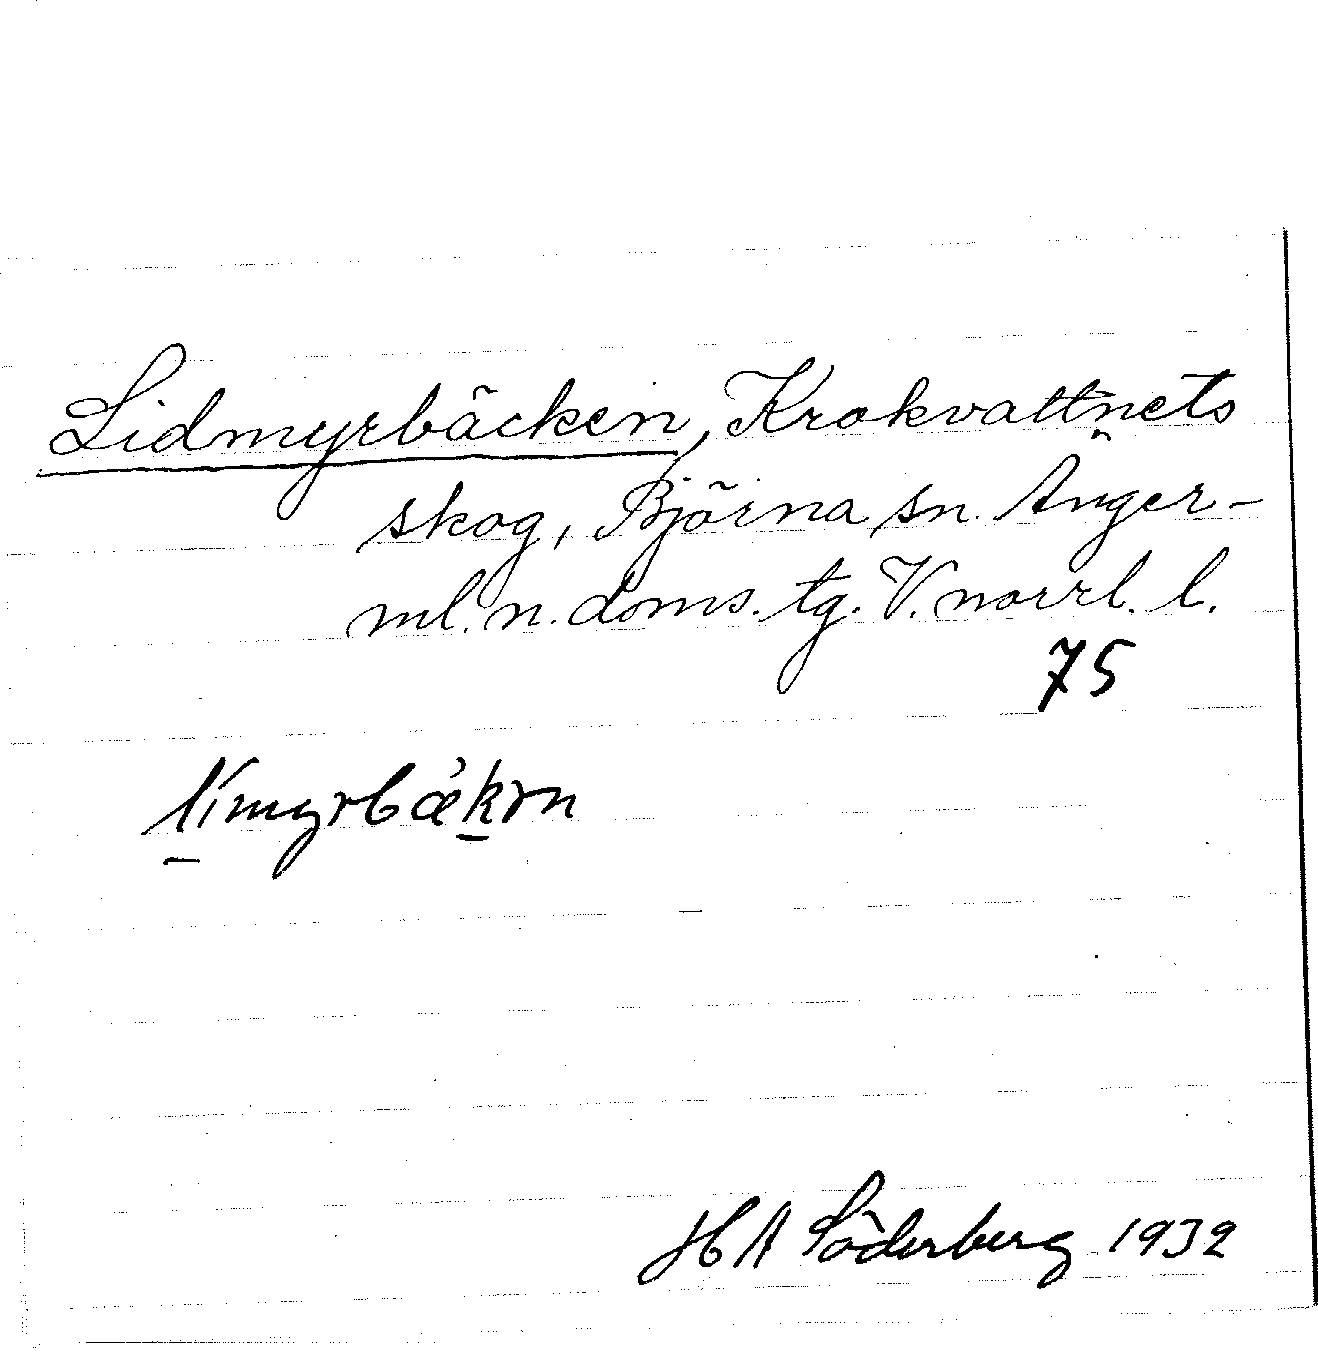 Lidmyrbäcken, Krokvattnets
skog, Björna sn. Ånger-
ml. n. doms. tg. V. norrl. l.
75
H A Söderberg 1932